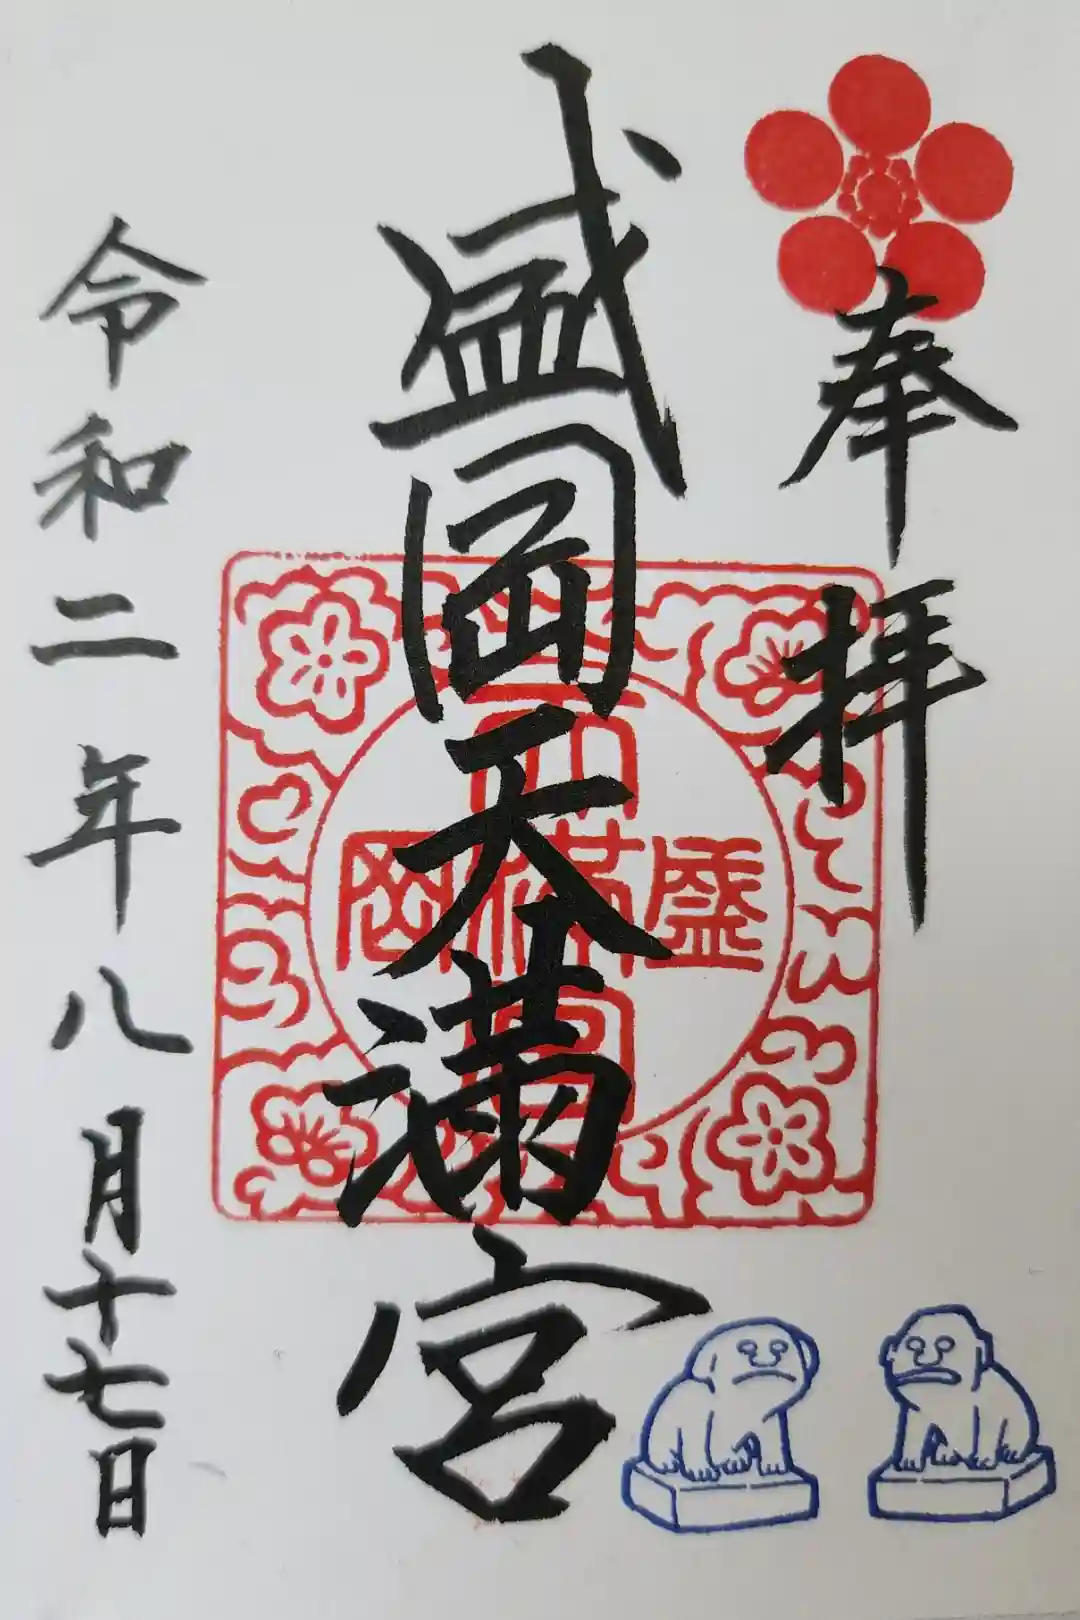 奉拝
盛岡天満宮
天満宮
盛岡
令和二年八月十七日